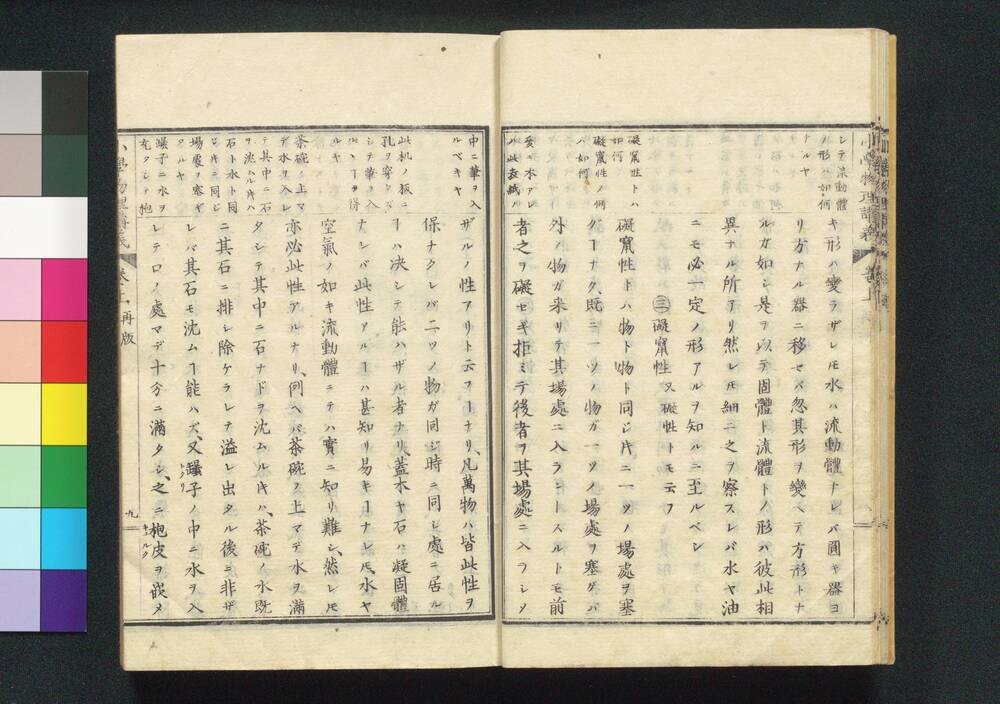 シテ流動體
ノ形ハ如何
ナルヤ
礙竄性トハ
如何
礙竄性ノ例
ハ如何
キ形ハ變ラザレ𪜈水ハ流動體ナレバ圓キ器ヨ
リ方ナル器ニ移セバ忽其形ヲ變ヘテ方形トナ
ルガ如シ是ヲ以テ固體ト流體トノ形ハ彼此相
異ナル所アリ然レ𪜈細ニ之ヲ察スレバ水ヤ油
ニモ必一定ノ形アルヲ知ルニ至ルベシ
㊂礙竄性 又礙性トモ云フ
礙竄性トハ物ト物ト同ジ𪜈ニ一ツノ場處ヲ塞
グヿナク、既ニ一ツノ物ガ一ツノ場處ヲ塞グバ
外ノ物ガ来リテ其場處ニ入ラントスルトモ前
者之ヲ礙セギ拒ミテ後者ヲ其場處ニ入ラシメ
中ニ華ヲ入
ルベキヤ
此机ノ板ニ
孔ヲ穿タズ
シテ華ヲ入
ルヽヿヲ得
ルヤ
茶碗ノ上マ
デ水ヲ入レ
テ其中ニ石
ヲ沈ムル𪜈ハ
石ト水ト同
場處ヲ塞ギ
ウルヤ
罎子ニ水ヲ
充タシテ抱
ザルノ性アリト云フヿナリ、凡萬物ハ皆此性ヲ
保ナクレバ二ツノ物ガ同ジ時ニ同シ處ニ居ル
ヿハ决シテ能ハザル者ナリ、蓋木ヤ石ハ凝固體
ナレバ此性アルヿハ甚知リ易キヿナレ𪜈、水ヤ
空氣ノ如キ流動體ニテハ實ニ知リ難シ、然レ𪜈
亦必此性アルナリ、例ヘバ茶碗ノ上マデ水ヲ滿
タシテ其中ニ石ナドヲ沈ムル𪜈ハ、茶碗ノ水既
ニ其石ニ排シ除ケラレテ溢レ出タル後ニ非ザ
レバ其石モ沈ムヿ能ハズ、又罎子ノ中ニ水ヲ入
レテロノ處マデ十分ニ滿タシ、之ニ抱皮ヲ嵌メ
小學物理講義 卷上 再版
九